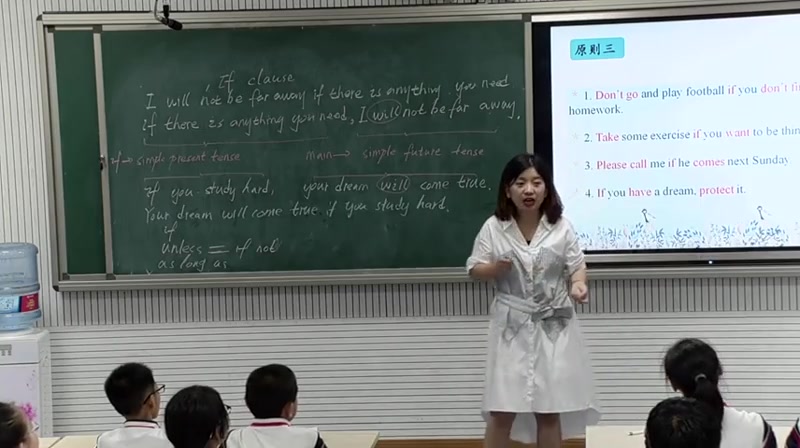 If clause
I will not be far away if there is anything you need
if there is anything you need, I will not be far away.
if → simple present tense main → simple future tense
if you study hard, your dream will come true.
Your dream will come true if you study hard.
if
unless = if not
as long as
原则三
1. Don't go and play football if you don't fi
homework.
2. Take some exercise if you want to be thin
3. Please call me if he comes next Sunday
4. If you have a dream, protect it.